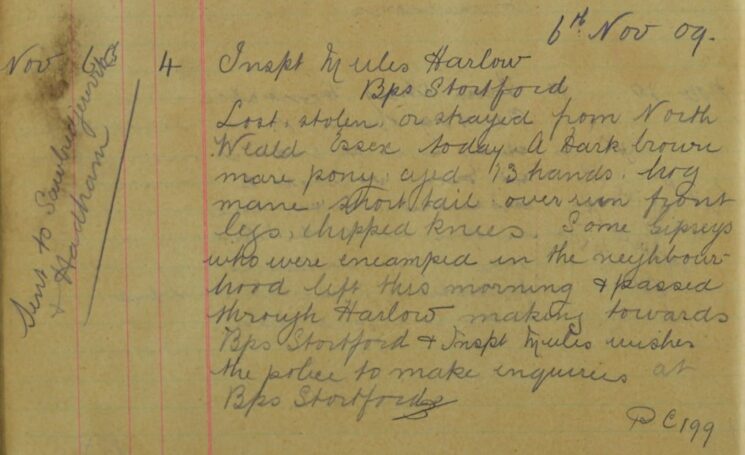 6th Nov 09.
Nov 5th 4 Inspt Mules Harlow
Bps Stortford
Lost, stolen, or strayed from North
Weald Essex today A Dark brown
mare pony, aged, 13 hands. hog
mane short tail over run front
legs, chipped knees. Some Gipseys
who were encamped in the neighbour-
hood left this morning & passed
through Harlow making towards
Bps Stortford & Inspt Mules wishes
the police to make enquiries at
Bps Stortford
PC 199
Sent to Sawbridgeworth
& Hadham